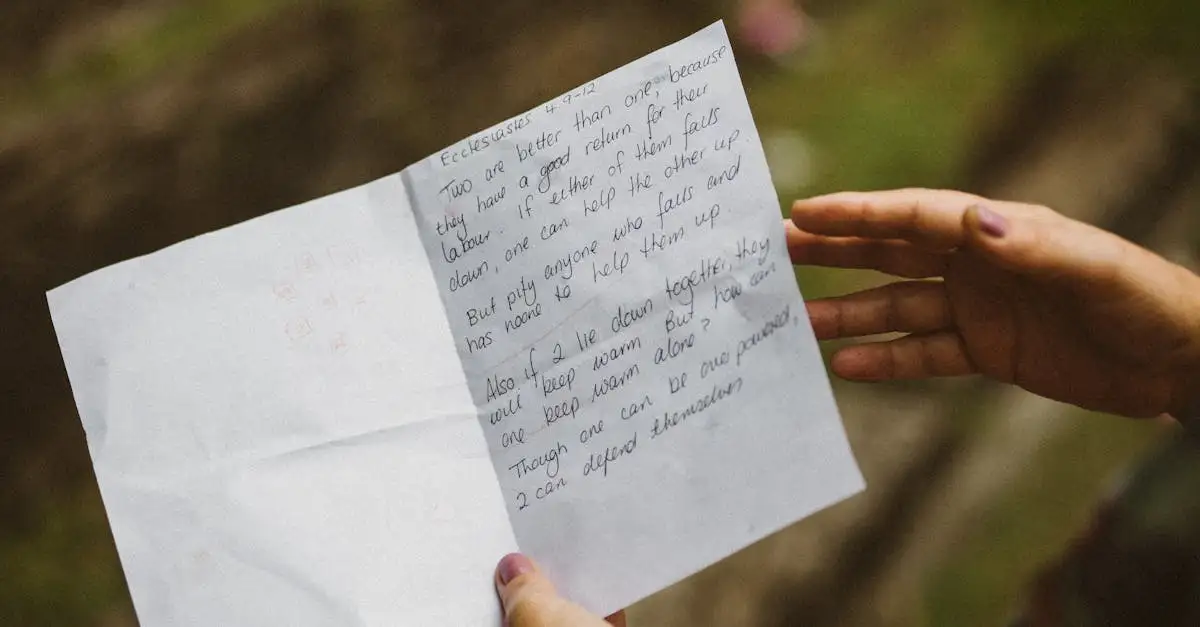 Ecclesiastes 4.9-12
Two are better than one, because
they have a good return for their
labour. If either of them falls
down, one can help the other up.
But pity anyone who falls and
has noone to help them up.
Also, if 2 lie down together, they
will keep warm. But how can
one keep warm alone?
Though one can be over powered,
2 can defend themselves